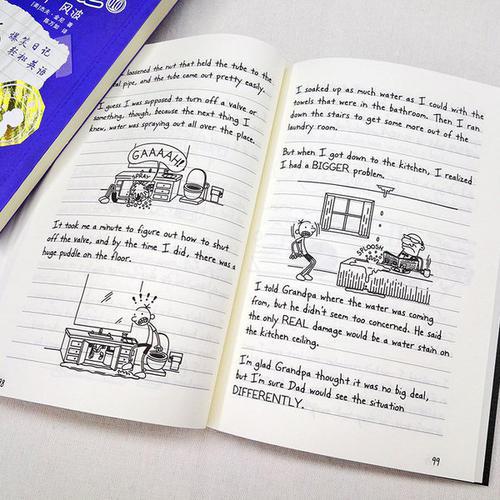 风波
[美]杰夫·金尼 著
陈万如 译
爆笑日记
轻松英语
I loosened the nut that held the tube to the
pipe, and the tube came out pretty easily.
I guess I was supposed to turn off a valve or
something, though, because the next thing I
knew, water was spraying out all over the place.
GAAAAH!
SPRAY
It took me a minute to figure out how to shut
off the valve, and by the time I did, there was a
huge puddle on the floor.
I soaked up as much water as I could with the
towels that were in the bathroom. Then I ran
down the stairs to get some more out of the
laundry room.
But when I got down to the kitchen, I realized
I had a BIGGER problem.
SPLOOSH
I told Grandpa where the water was coming
from, but he didn't seem too concerned. He said
the only REAL damage would be a water stain on
the kitchen ceiling.
I'm glad Grandpa thought it was no big deal,
but I'm sure Dad would see the situation
DIFFERENTLY.
99